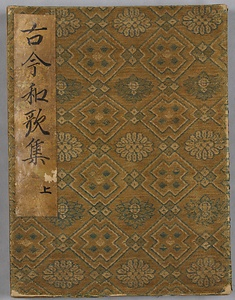 古今和歌集
上